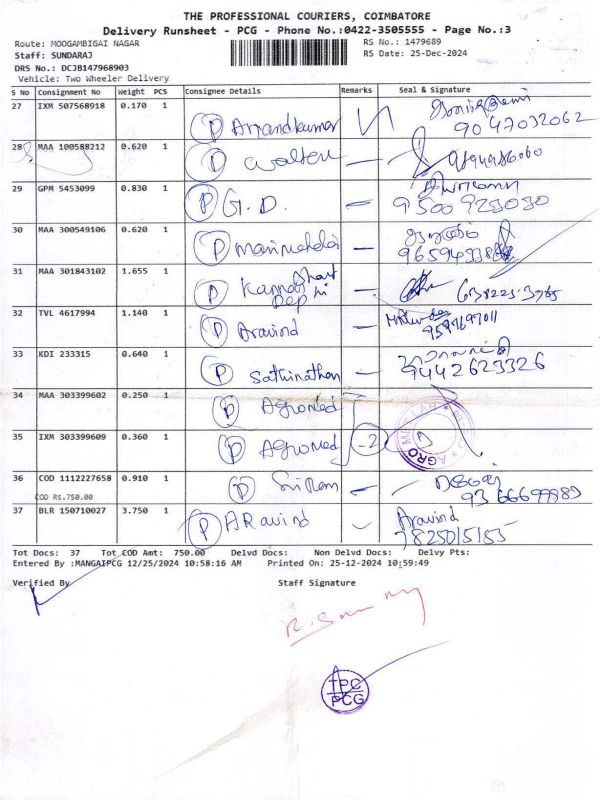 THE PROFESSIONAL COURIERS, COIMBATORE
Delivery Runsheet - PCG - Phone No.:0422-3505555 - Page No.:3
Route: MOOGAMBIGAI NAGAR
RS No.: 1479689
Staff: SUNDARAJ
RS Date: 25-Dec-2024
DRS No.: DCJB147968903
Vehicle: Two Wheeler Delivery
S No Consignment No Weight PCS Consignee Details Remarks Seal & Signature
27 IXM 507568918 0.170 1 P Anandkumar 9047032062
28 MAA 100588212 0.620 1 P
29 GPM 5453099 0.830 1 P G.D. 9500923030
30 MAA 300549106 0.620 1 P
31 MAA 301843102 1.655 1 P
32 TVL 4617994 1.140 1 P Aravind
33 KDI 233315 0.640 1 P Sathinathan 9442623326
34 MAA 303399602 0.250 1 P Agromed
35 IXM 303399609 0.360 1 P Agromed 2 AGRO
36 COD 1112227658 0.910 1 P Sri Ram
COD Rs.750.00
37 BLR 150710027 3.750 1 P ARavind Aravind
Tot Docs: 37 Tot COD Amt: 750.00 Delvd Docs: Non Delvd Docs: Delvy Pts:
Entered By :MANGAIPCG 12/25/2024 10:58:16 AM Printed On: 25-12-2024 10:59:49
Verified By Staff Signature
TPC
PCG